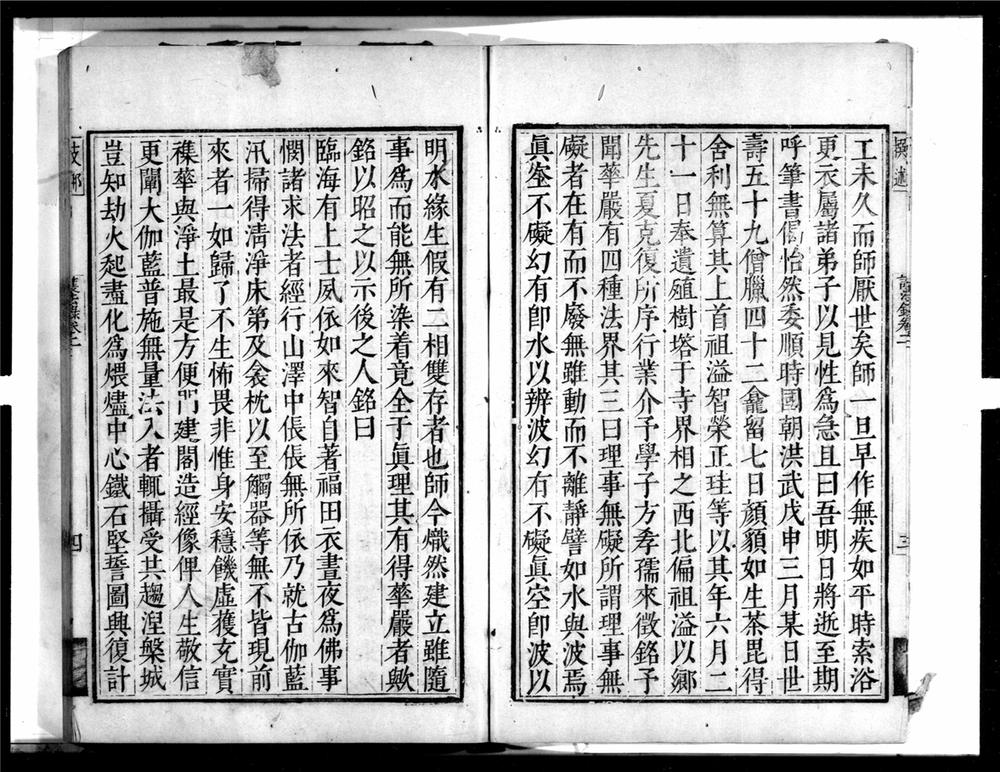 工未久而師厭世矣師一旦早作無疾如平時索浴
更衣屬諸弟子以見性為急且曰吾明日將逝至期
呼筆書偈怡然委順時國朝洪武戊申三月某日世
壽五十九僧臘四十二龕留七日顏貌如生荼毘得
舍利無算其上首祖溢智榮正珪等以其年六月二
十一日奉遺殖樹塔于寺界相之西北偏祖溢以鄉
先生夏克復所序行業介予學子方孝孺來徵銘予
聞華嚴有四種法界其三曰理事無礙所謂理事無
礙者在有而不廢無雖動而不離靜譬如水與波焉
眞空不礙幻有卽水以辨波幻有不礙眞空卽波以
明水緣生假有二相雙存者也師今熾然建立雖隨
事為而能無所染着竟全于眞理其有得華嚴者歟
銘以昭之以示後之人銘曰
臨海有上士夙依如來智自著福田衣晝夜為佛事
憫諸求法者經行山澤中倀倀無所依乃就古伽藍
汛掃得清淨床第及衾枕以至觸器等無不皆現前
來者一如歸了不生怖畏非惟身安穩饑虛獲充實
襍華與淨土最是方便門建閣造經像俾人生敬信
更闡大伽藍普施無量法入者輒攝受共趨涅槃城
豈知劫火起盡化為煨燼中心鐵石堅誓圖興復計
四
三